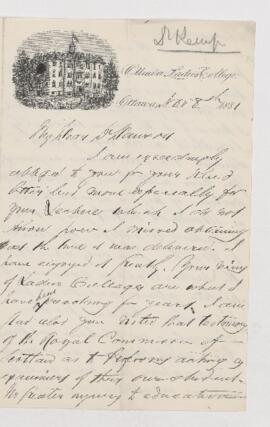 Dr Kemp
Ottawa Ladies' College.
Ottawa, 8th 1881
My Dear Dr Dawson
I am exceedingly
obliged to you for your kind
letter but more especially for
your Lecture which I do not
know how I missed obtaining
at the time it was delivered. I
have enjoyed it Your views
of Ladies Colleges are what I
have for years. I am
glad also you that testimony
of the Royal Commission of
Scotland as to Professors acting as
examiners of their own students.
No greater injury to education